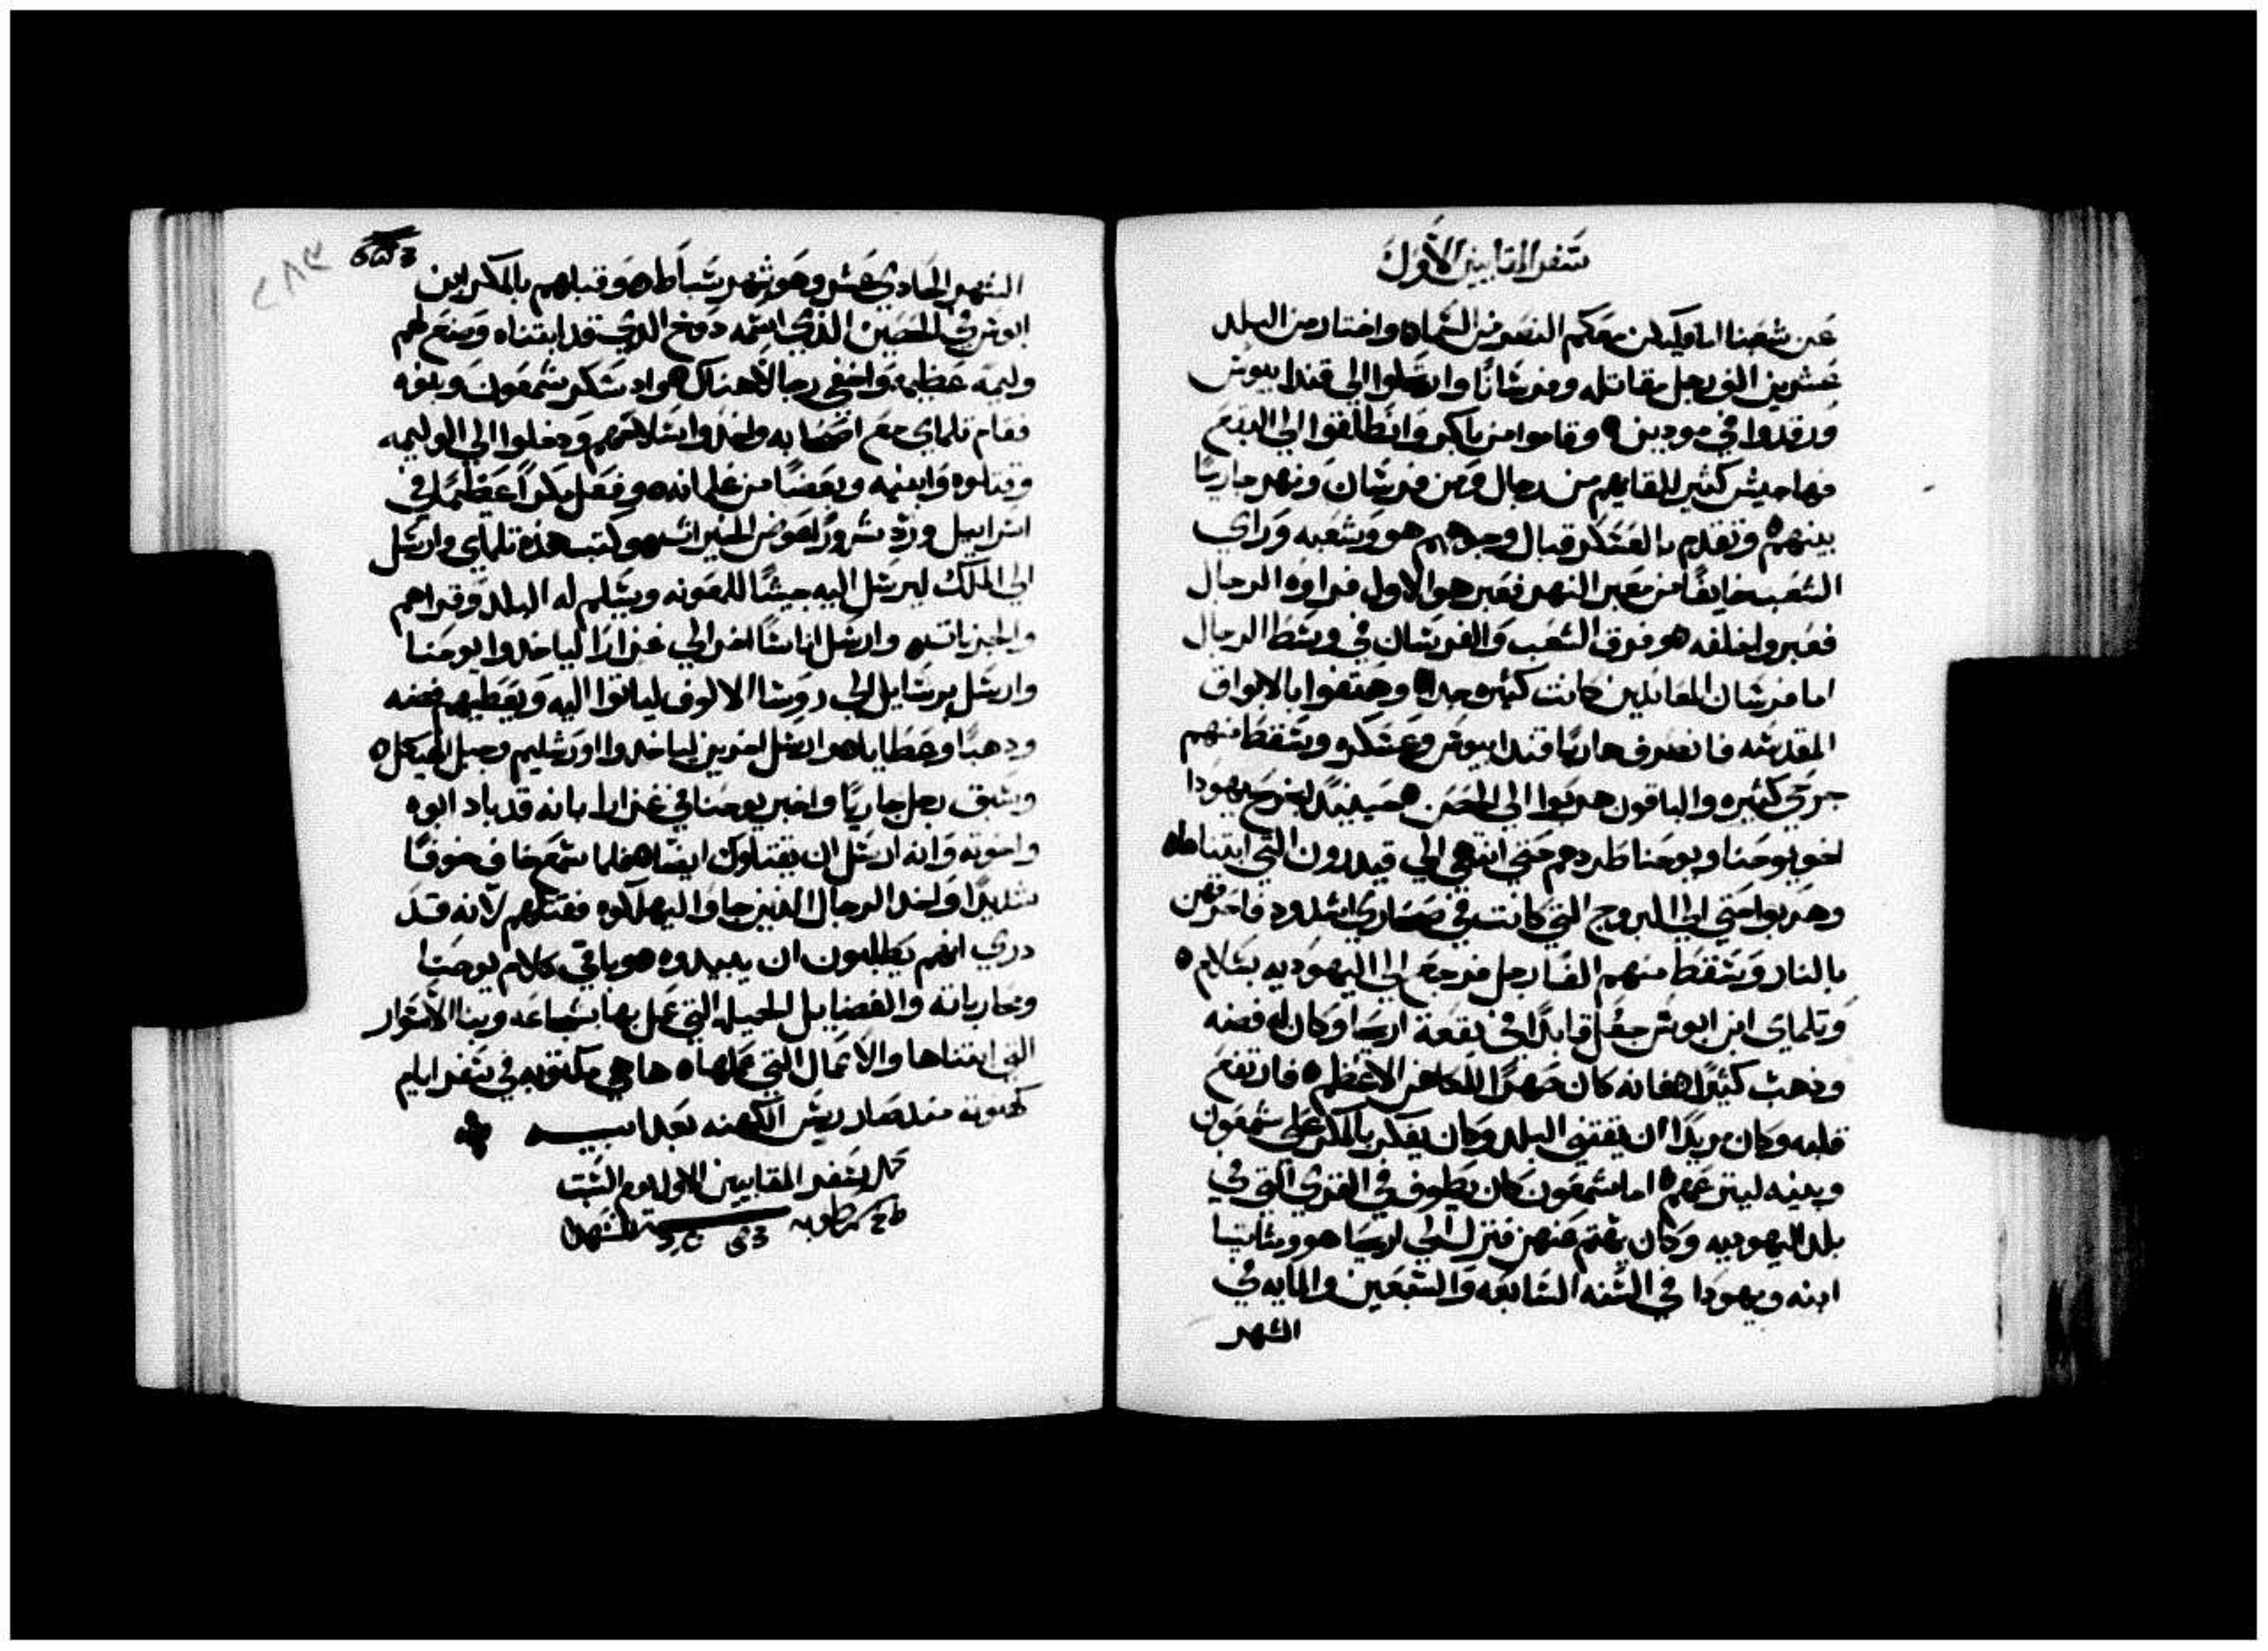 سفر المقابيين الاول
عن شعبنا اما وليكن معكم النصر من السماء واختار من البلد
عشرين الف رجل مقاتله وفرسانًا وارتحلوا الى قندابيوس
ورقدوا في مودين وقاموا من باكر وانطلقوا الى البقع
فها جيش كثير للقايهم من رجال ومن فرسان ونهر جاريًا
بينهم وتقدم بالعسكر قبال وجوههم هو وشعبه وراي
الشعب خايفًا من معبر النهر فعبر هو الاول فراوه الرجال
فعبروا خلفه هو فرق الشعب والفرسان في وسط الرجال
اما فرسان المقاتلين كانت كثيره جدا وهتفوا بالابواق
المقدسه فانصرف هاربًا قندابيوس وعسكره وسقط منهم
جرحي كثيره والباقون هربوا الى الحصن حينيدٍ انجرح يهودا
اخو يوحنا ويوحنا طردهم حتى انتهى الى قيدرون التي ابتناها
وهربوا حتى الى البروج التي كانت في صحاري اشدود فاحرقهن
بالنار وسقط منهم الفا رجل فرجع الى اليهوديه بسلام
وتلماي ابن ابوس جعل قايدًا في بقعة اريحا وكان له فضه
وذهب كثيرًا فانه كان صهرًا للكاهن الاعظم فارتفع
قلبه وكان مريدًا ان يقتني البلد وكان يفكر بالمكر على شمعون
وبنيه لينزعهم اما شمعون كان يطوف في القري التي في
بلد اليهوديه وكان يهتم عنهن فنزل الى اريحا هو ومتاتيا
ابنه ويهودا في السنه السابعه والسبعين والمايه في
الشهر
٢٨٣
الشهر الحادي عشر وهو شهر شباط وقبلهم بالمكر ابن
ابوس في الحصين الذي اسمه دوخ الذي قد ابتناه وصنع لهم
وليمه عظيمه واخفى رجالًا هناك واد سكر شمعون وبنوه
فقام تلماي مع اصحابه واخذوا سلاحهم ودخلوا الى الوليمه
وقتلوه وابنيه وبعضًا من غلمانه وفعل مكرًا عظيمًا في
اسراييل ورد شرورًا عوض الخيرات وكتب هذه تلماي وارسل
الى الملك ليرسل اليه جيشًا للمعونه ويسلم له البلد وقراهم
والجزيات وارسل اناسًا اخر الى غزارا لياخدوا يوحنا
وارسل برسايل الى روسا الالوف لياتوا اليه ويعطيهم فضه
ودهبًا وعطايا وارسل اخرين لياخدوا اورشليم وجبل الهيكل
وسبق رجل جاريًا واخبر يوحنا في غزارا بانه قد باد ابوه
واخوته وانه ارسل ان يقتلوك ايضًا فلما سمع خاف خوفًا
شديدًا واخد الرجال الذين جاوا ليهلكوه فقتلهم لانه قد
دري انهم يطلبون ان يبيدوه وباقي كلام يوحنا
ومحارباته والفضايل الجميله التي عمل بها بشجاعه وبنا الاسوار
التي ابتناها والاعمال التي عملها ها هي مكتوبه في سفر ايام
كهنوته منذ صار ريس الكهنه بعد ابيـــه
كمل سفر المقابيين الاول يوم السبت